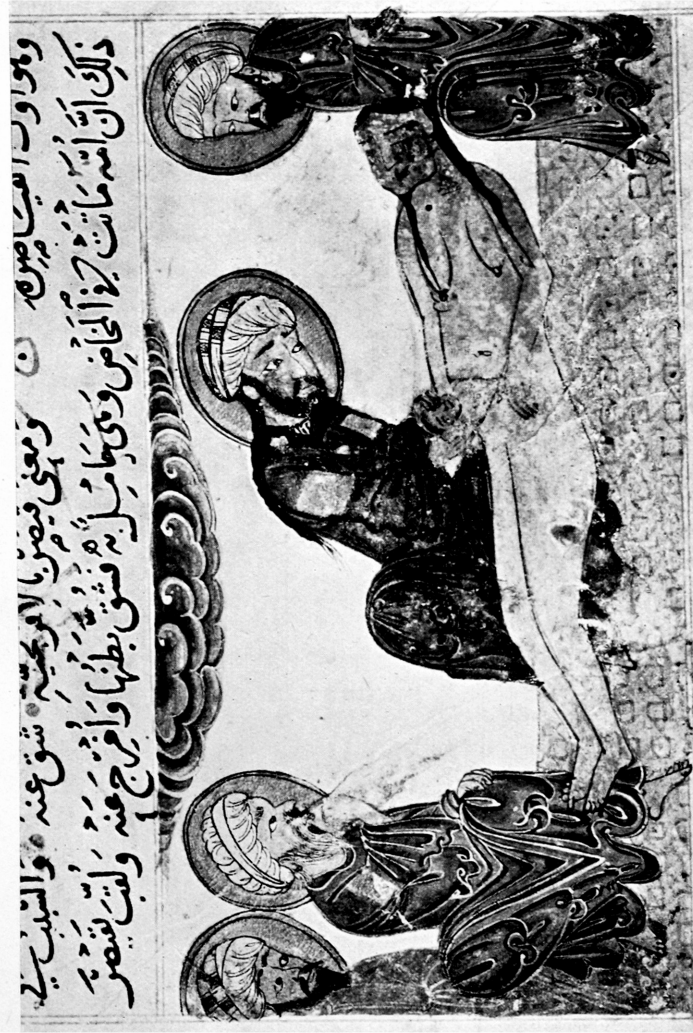 وهو اول القياصرة ومعنى قيصر بالافرنجية شق عنه والسبب في
ذلك ان امه ماتت في المخاض وهى حامل به فشق بطنها واخرج عنه ولقب بقيصر